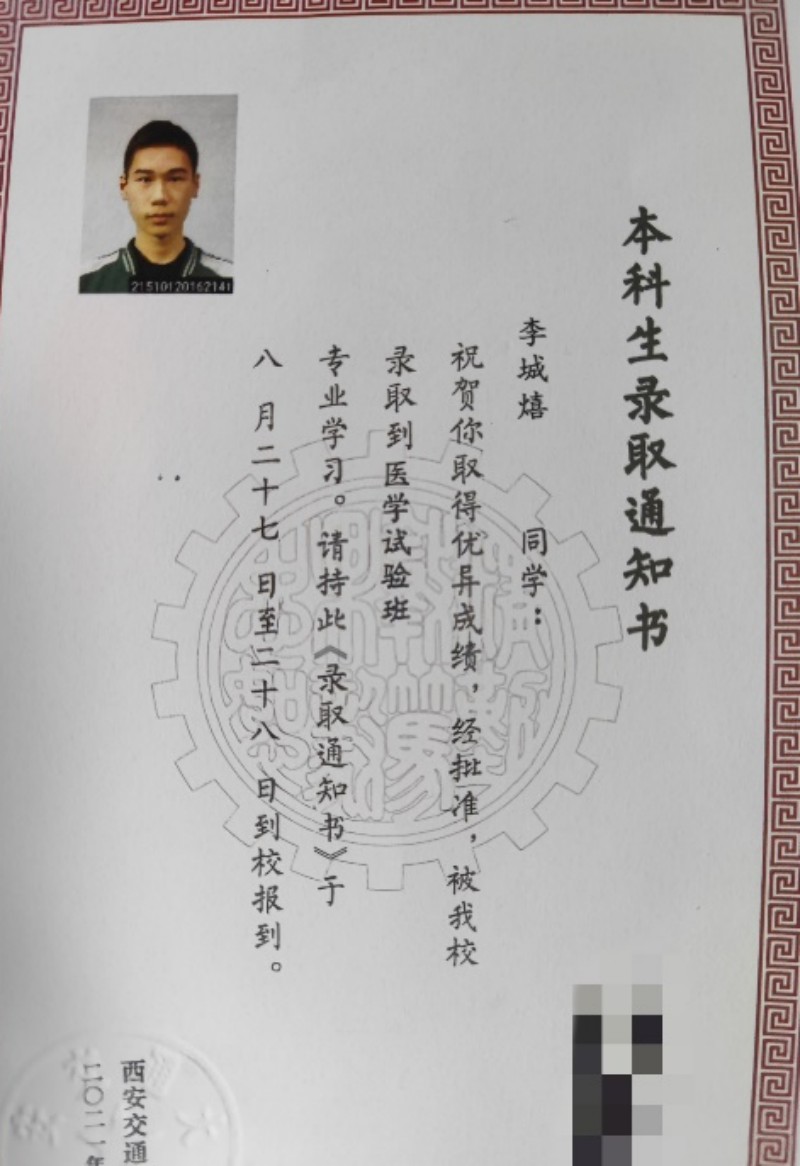 本科生录取通知书
李城熺 同学：
祝贺你取得优异成绩，经批准，被我校
录取到医学试验班
专业学习。请持此《录取通知书》于
八 月二十七 日至二十八 日到校报到。
西安交通
二〇二一年
21510120162141